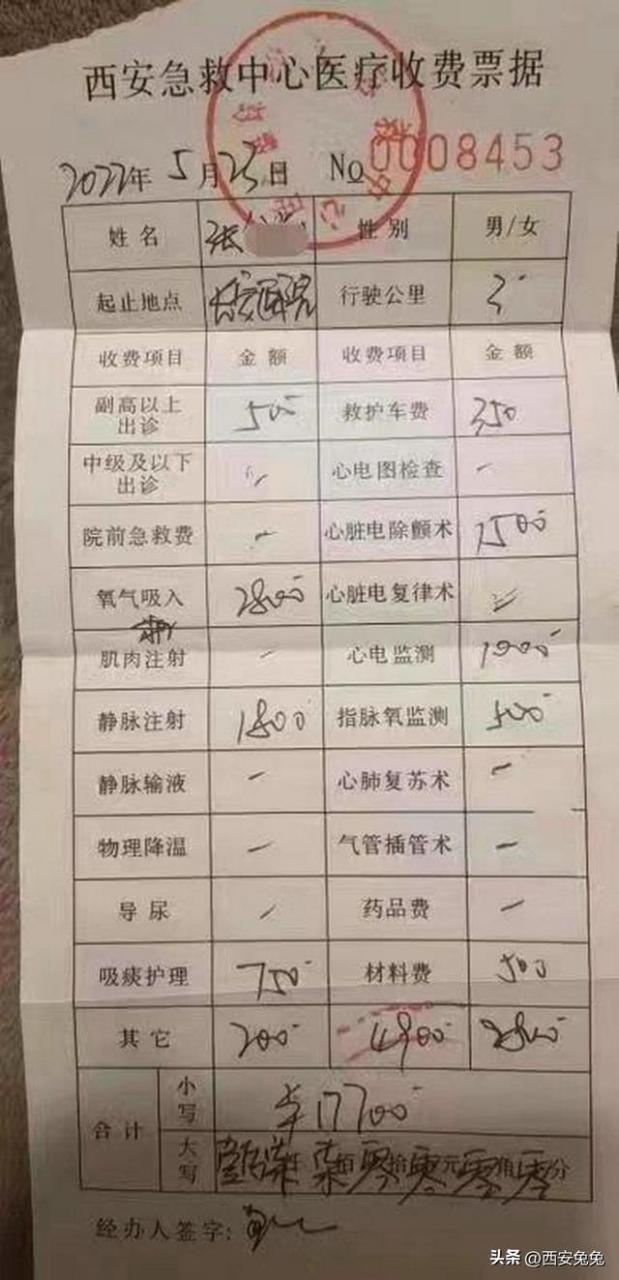 西安急救中心医疗收费票据
2022年 5月23日 No 0008453
姓名 张 性别 男/女
起止地点 长安医院 行驶公里 3
收费项目 金额 收费项目 金额
副高以上出诊 50 救护车费 350
中级及以下出诊 心电图检查 -
院前急救费 - 心脏电除颤术 1500
氧气吸入 2800 心脏电复律术
肌肉注射 - 心电监测 1000
静脉注射 1800 指脉氧监测 500
静脉输液 - 心肺复苏术 -
物理降温 - 气管插管术 -
导尿 - 药品费 -
吸痰护理 750 材料费 500
其它 200 4900
合计 小写 ¥17700
大写 壹万柒仟柒佰零拾零元零角零分
经办人签字:
头条 @西安兔兔